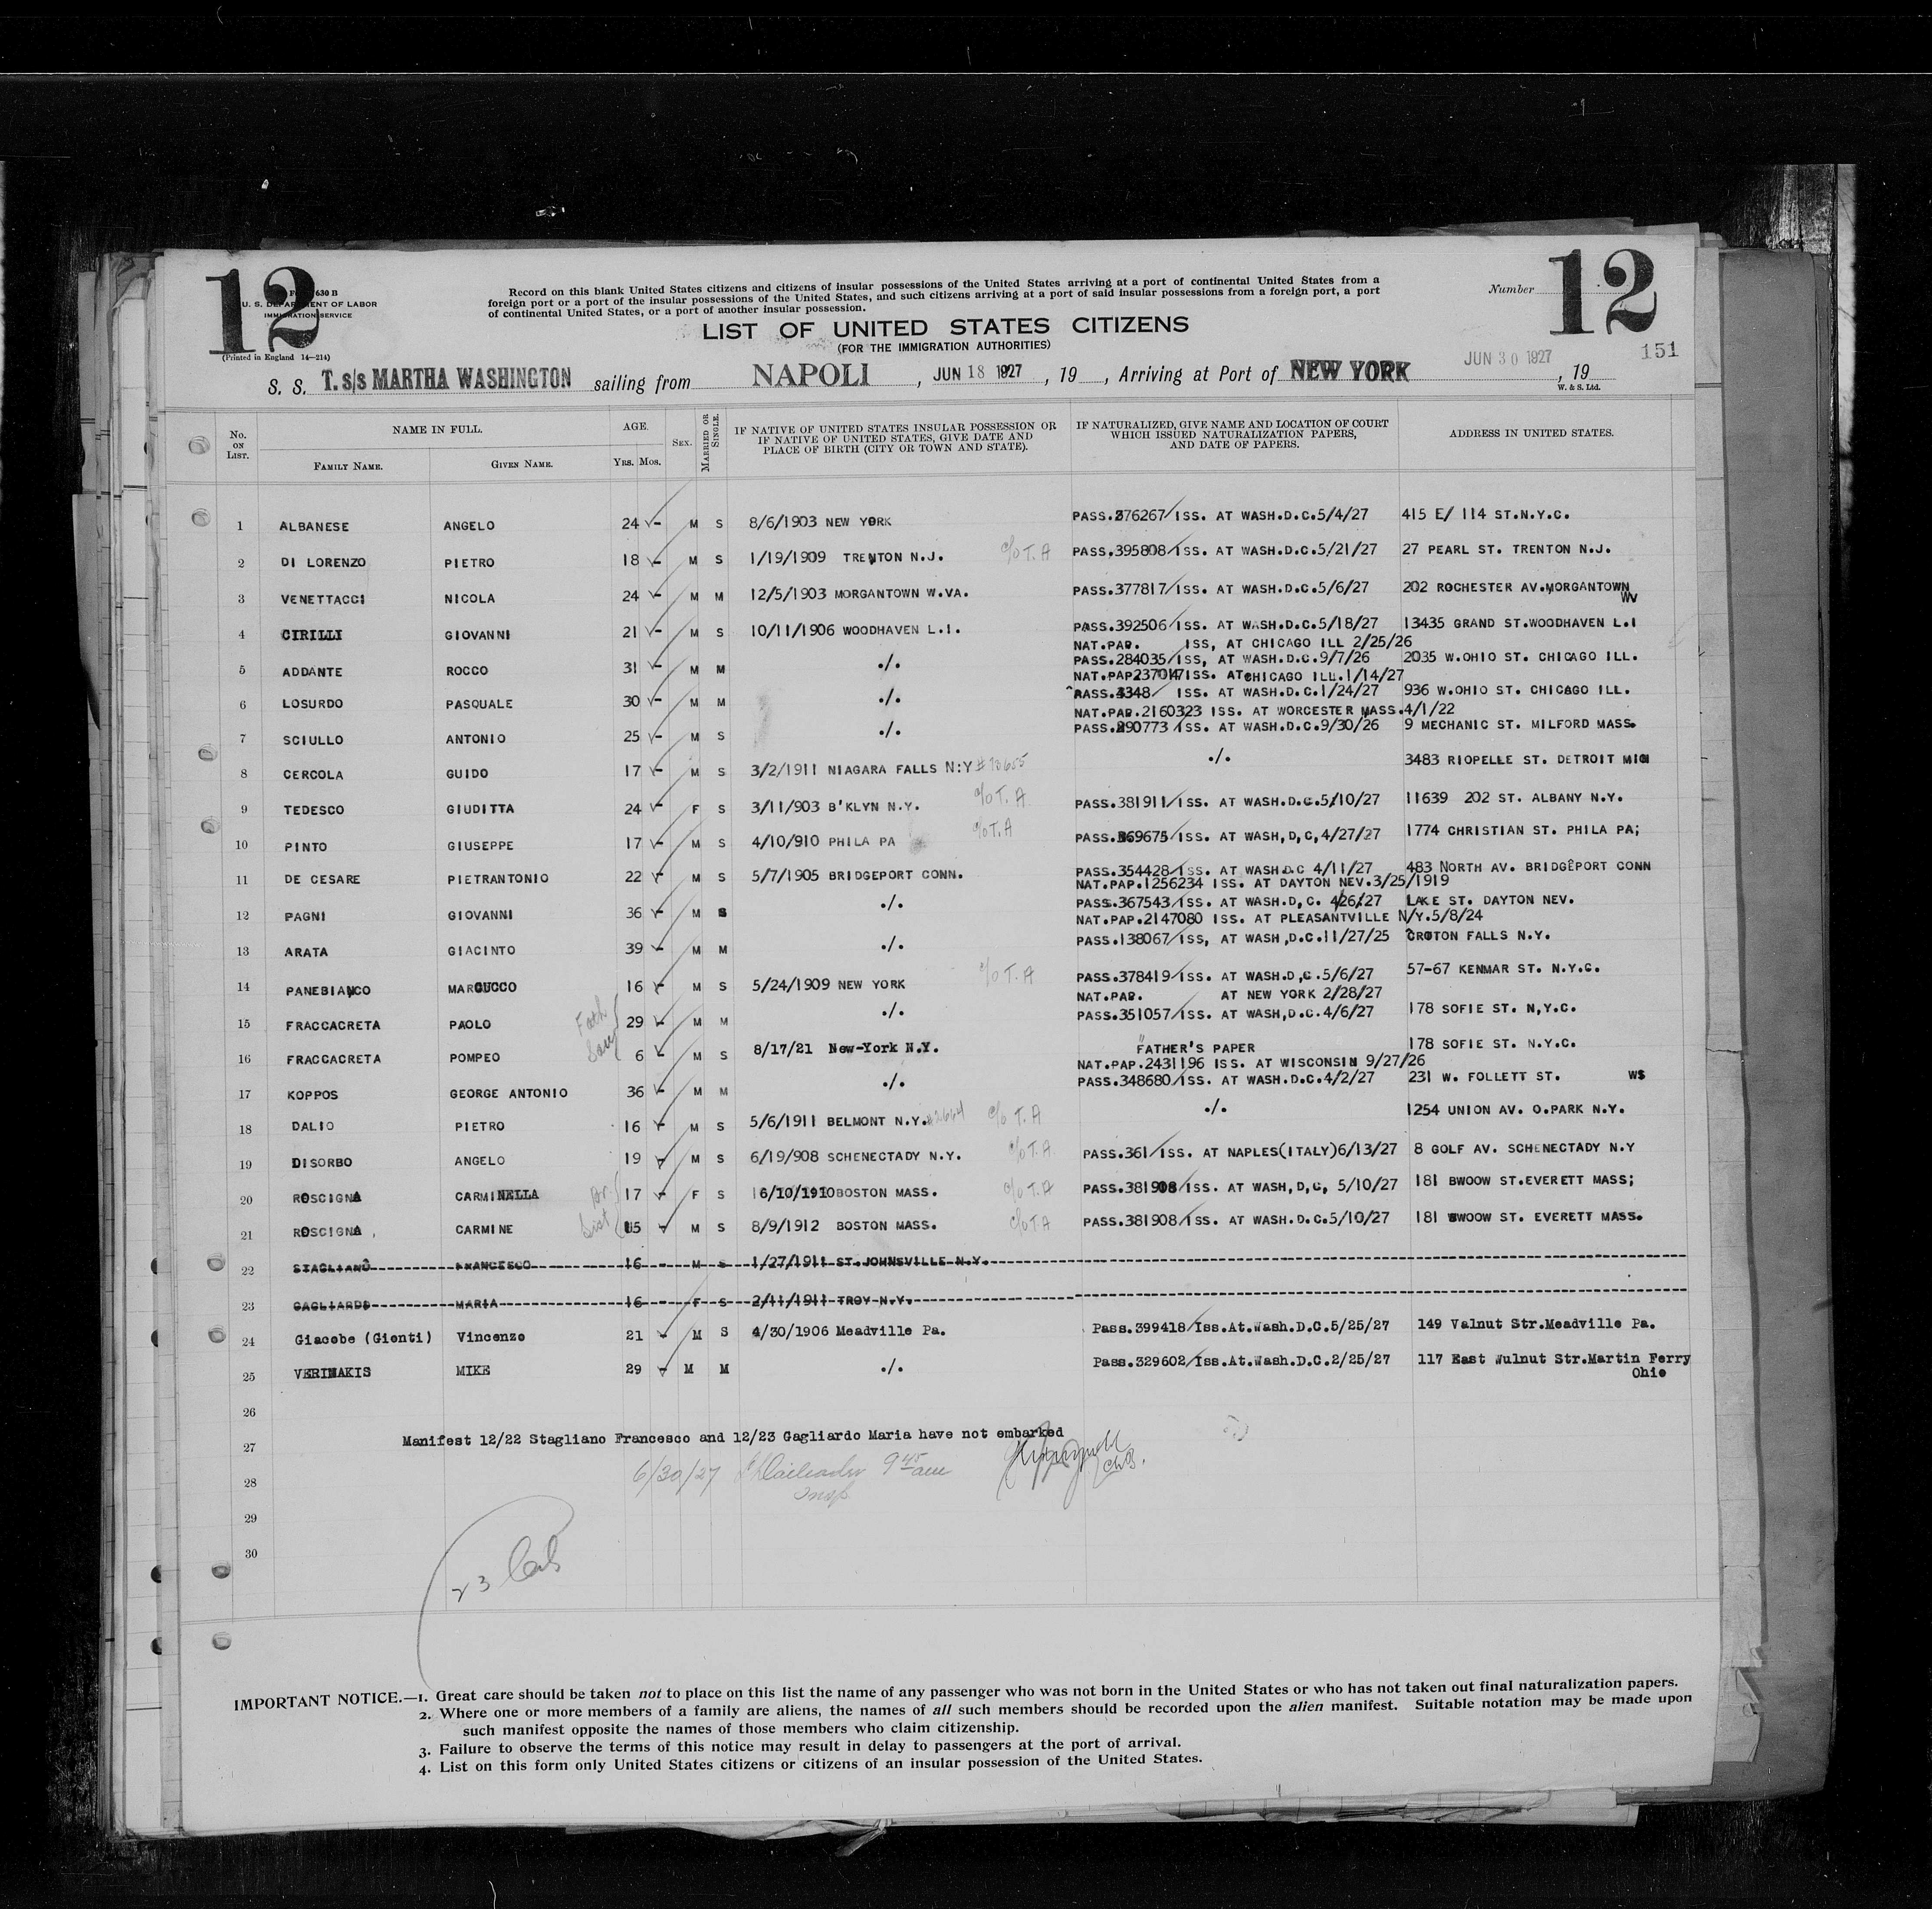 12
12
Form 630 B
U. S. DEPARTMENT OF LABOR
IMMIGRATION SERVICE
(Printed in England 14—214)
Record on this blank United States citizens and citizens of insular possessions of the United States arriving at a port of continental United States from a
foreign port or a port of the insular possessions of the United States, and such citizens arriving at a port of said insular possessions from a foreign port, a port
of continental United States, or a port of another insular possession.
Number
LIST OF UNITED STATES CITIZENS
(FOR THE IMMIGRATION AUTHORITIES)
151
S. S. T. s/s MARTHA WASHINGTON sailing from NAPOLI, JUN 18 1927, 19 , Arriving at Port of NEW YORK JUN 30 1927, 19
W. & S. Ltd.
No. ON LIST. NAME IN FULL. AGE. SEX. MARRIED OR SINGLE. IF NATIVE OF UNITED STATES INSULAR POSSESSION OR IF NATIVE OF UNITED STATES, GIVE DATE AND PLACE OF BIRTH (CITY OR TOWN AND STATE). IF NATURALIZED, GIVE NAME AND LOCATION OF COURT WHICH ISSUED NATURALIZATION PAPERS, AND DATE OF PAPERS. ADDRESS IN UNITED STATES.
FAMILY NAME. GIVEN NAME. YRS. MOS.
1 ALBANESE ANGELO 24 - M S 8/6/1903 NEW YORK PASS.376267/ISS. AT WASH.D.C.5/4/27 415 E/ 114 ST.N.Y.C.
2 DI LORENZO PIETRO 18 - M S 1/19/1909 TRENTON N.J. c/o T.A PASS.395808/ISS. AT WASH.D.C.5/21/27 27 PEARL ST. TRENTON N.J.
3 VENETTACCI NICOLA 24 - M M 12/5/1903 MORGANTOWN W.VA. PASS.377817/ISS. AT WASH.D.C.5/6/27 202 ROCHESTER AV.MORGANTOWN
WV
4 CIRILLI GIOVANNI 21 - M S 10/11/1906 WOODHAVEN L.I. PASS.392506/ISS. AT WASH.D.C.5/18/27 13435 GRAND ST.WOODHAVEN L.I
NAT.PAP. ISS, AT CHICAGO ILL 2/25/26
5 ADDANTE ROCCO 31 - M M ./. PASS.284035/ISS, AT WASH.D.C.9/7/26 2035 W.OHIO ST. CHICAGO ILL.
NAT.PAP237017ISS. ATCHICAGO ILL.1/14/27
6 LOSURDO PASQUALE 30 - M M ./. PASS.4348/ ISS. AT WASH.D.C.1/24/27 936 W.OHIO ST. CHICAGO ILL.
NAT.PAP.2160323 ISS. AT WORCESTER MASS.4/1/22
7 SCIULLO ANTONIO 25 - M S ./. PASS.290773/ISS. AT WASH.D.C.9/30/26 9 MECHANIC ST. MILFORD MASS.
8 CERCOLA GUIDO 17 - M S 3/2/1911 NIAGARA FALLS N:Y ./. 3483 RIOPELLE ST. DETROIT MIC
9 TEDESCO GIUDITTA 24 - F S 3/11/903 B'KLYN N.Y. c/o T.A PASS.381911/ISS. AT WASH.D.C.5/10/27 11639 202 ST. ALBANY N.Y.
10 PINTO GIUSEPPE 17 - M S 4/10/910 PHILA PA c/o T.A PASS.369675/ISS. AT WASH,D,C,4/27/27 1774 CHRISTIAN ST. PHILA PA;
11 DE CESARE PIETRANTONIO 22 - M S 5/7/1905 BRIDGEPORT CONN. PASS.354428/ISS. AT WASH.D.C 4/11/27 483 NORTH AV. BRIDGEPORT CONN
NAT.PAP.1256234 ISS. AT DAYTON NEV.3/25/1919
12 PAGNI GIOVANNI 36 - M S ./. PASS.367543/ISS. AT WASH.D,C. 4/26/27 LAKE ST. DAYTON NEV.
NAT.PAP.2147080 ISS. AT PLEASANTVILLE N/Y.5/8/24
13 ARATA GIACINTO 39 - M M ./. PASS.138067/ISS, AT WASH,D.C.11/27/25 CROTON FALLS N.Y.
14 PANEBIANCO MARCUCCO 16 - M S 5/24/1909 NEW YORK c/o T.A PASS.378419/ISS. AT WASH.D,C.5/6/27 57-67 KENMAR ST. N.Y.C.
NAT.PAP. AT NEW YORK 2/28/27
15 FRACCACRETA PAOLO Fath 29 - M M ./. PASS.351057/ISS. AT WASH,D.C.4/6/27 178 SOFIE ST. N,Y.C.
16 FRACCACRETA POMPEO 6 - M S 8/17/21 New-York N.Y. "FATHER'S PAPER 178 SOFIE ST. N.Y.C.
NAT.PAP.2431196 ISS. AT WISCONSIN 9/27/26
17 KOPPOS GEORGE ANTONIO 36 - M M ./. PASS.348680/ISS. AT WASH.D.C.4/2/27 231 W. FOLLETT ST. WS
18 DALIO PIETRO 16 - M S 5/6/1911 BELMONT N.Y. c/o T.A ./. 1254 UNION AV. O.PARK N.Y.
19 DISORBO ANGELO 19 - M S 6/19/908 SCHENECTADY N.Y. c/o T.A PASS.361/ISS. AT NAPLES(ITALY)6/13/27 8 GOLF AV. SCHENECTADY N.Y
20 ROSCIGNA CARMINELLA Br. 17 - F S 16/10/1910BOSTON MASS. c/o T.A PASS.381908/ISS. AT WASH,D,C, 5/10/27 181 BWOOW ST.EVERETT MASS;
21 ROSCIGNA, CARMINE Sist 15 - M S 8/9/1912 BOSTON MASS. c/o T.A PASS.381908/ISS. AT WASH.D.C.5/10/27 181 BWOOW ST. EVERETT MASS.
22 STAGLIANO FRANCESCO 16 - M S 1/27/1911 ST.JOHNSVILLE N.Y.
23 GAGLIARDO MARIA 16 - F S 2/11/1911 TROY N.Y.
24 Giacobe (Gienti) Vincenzo 21 - M S 4/30/1906 Meadville Pa. Pass.399418/Iss.At.Wash.D.C.5/25/27 149 Valnut Str.Meadville Pa.
25 VERINAKIS MIKE 29 - M M ./. Pass.329602/Iss.At.Wash.D.C.2/25/27 117 East Wulnut Str.Martin Ferry
Ohio
26
27 Manifest 12/22 Stagliano Francesco and 12/23 Gagliardo Maria have not embarked
28 6/30/27 9 45 am
Insp
29
30
23
IMPORTANT NOTICE.—1. Great care should be taken not to place on this list the name of any passenger who was not born in the United States or who has not taken out final naturalization papers.
2. Where one or more members of a family are aliens, the names of all such members should be recorded upon the alien manifest. Suitable notation may be made upon
such manifest opposite the names of those members who claim citizenship.
3. Failure to observe the terms of this notice may result in delay to passengers at the port of arrival.
4. List on this form only United States citizens or citizens of an insular possession of the United States.